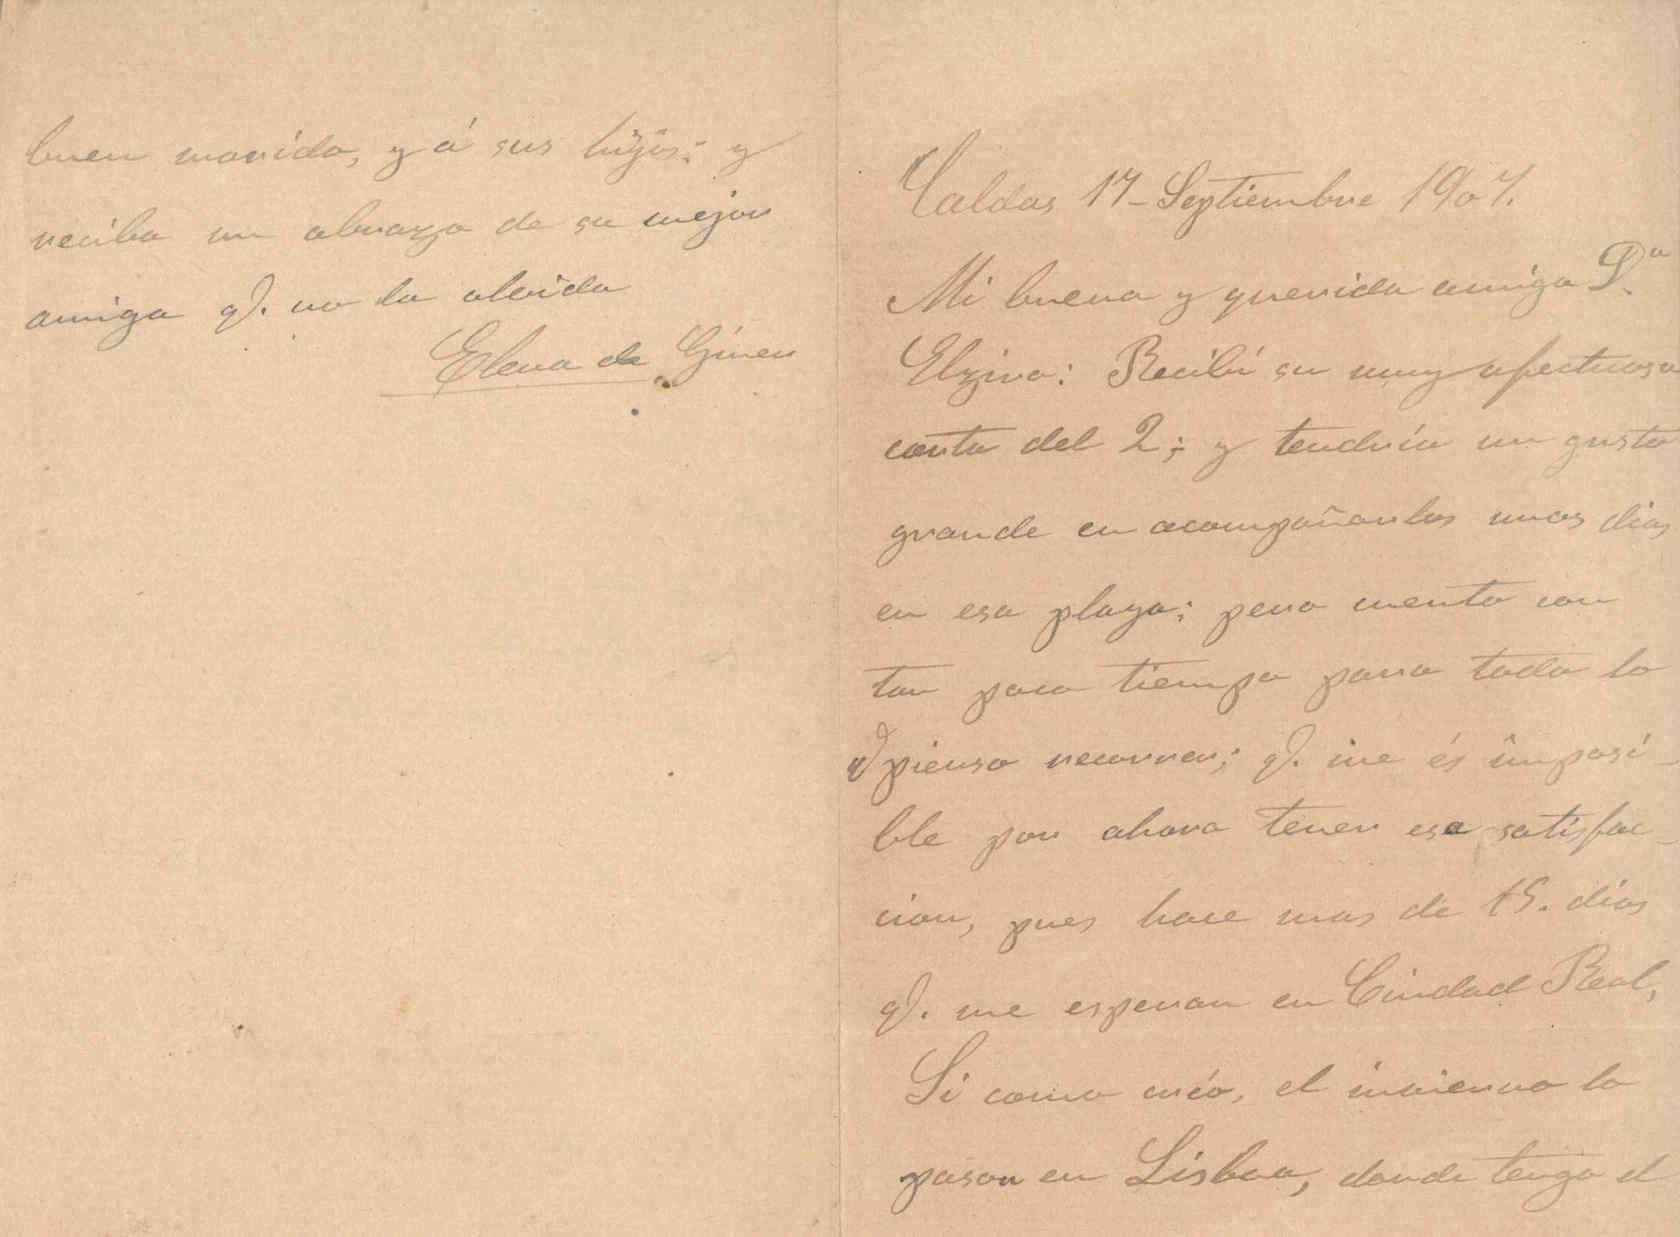 Caldas 17-Septiembre 1907.
Mi buena y querida amiga D.ª
Elzira: Recibí su muy afectuosa
carta del 2; y tendría un gusto
grande en acompañarlos unos dias
en esa playa; pero cuento con
tan poco tiempo para todo lo
q. pienso recorrer; q. me és imposi-
ble por ahora tener esa satisfac-
cion, pues hace mas de 15. días
q. me esperan en Ciudad Real,
Si como créo, el invierno lo
pasan en Lisboa, donde tengo el
buen marido, y á sus hijos; y
reciba un abrazo de su mejor
amiga q. no la olvida
Elena de Giner